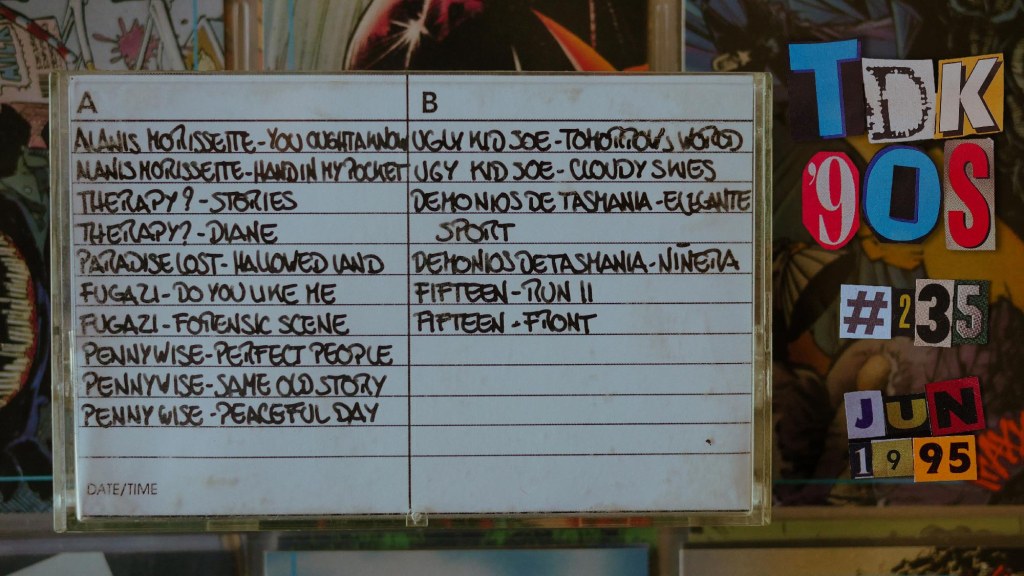 A
ALANIS MORISSETTE - YOU OUGHTA KNOW
ALANIS MORISSETTE - HAND IN MY POCKET
THERAPY? - STORIES
THERAPY? - DIANE
PARADISE LOST - HALLOWED LAND
FUGAZI - DO YOU LIKE ME
FUGAZI - FORENSIC SCENE
PENNYWISE - PERFECT PEOPLE
PENNYWISE - SAME OLD STORY
PENNYWISE - PEACEFUL DAY
DATE/TIME
B
UGLY KID JOE - TOMORROW'S WORLD
UGY KID JOE - CLOUDY SKIES
DEMONIOS DE TASMANIA - ELEGANTE
SPORT
DEMONIOS DE TASMANIA - NIÑERA
FIFTEEN - RUN II
FIFTEEN - FRONT
TDK
'90S
#235
JUN
1995